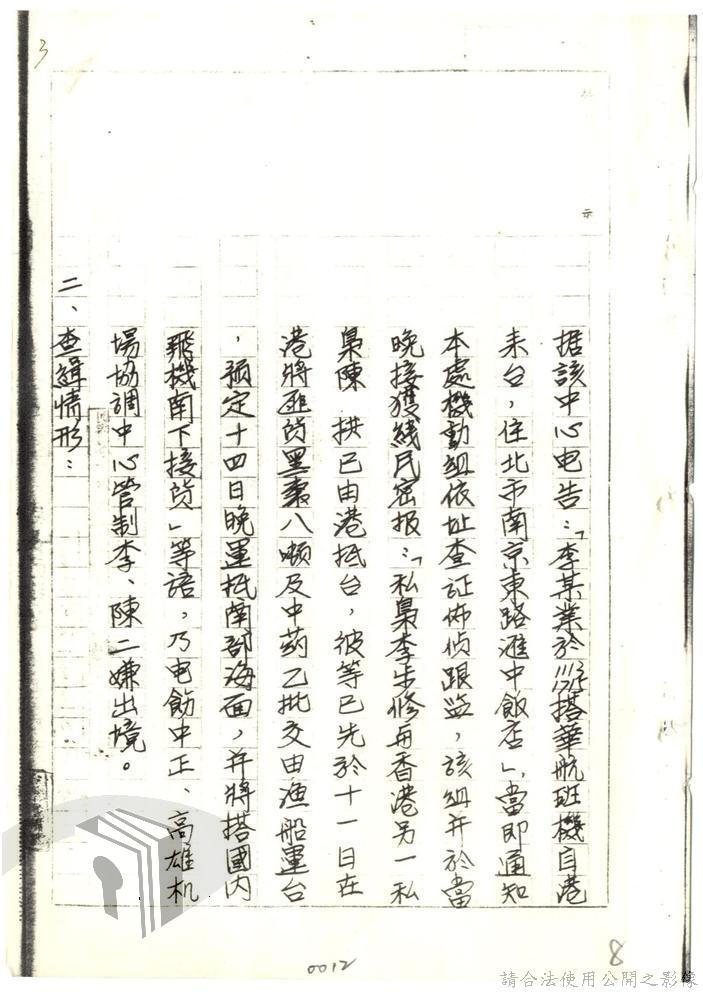 据該中心电告：「李某業於搭華航班機自港
来台，住北市南京東路滙中飯店」，當即通知
本處機動組依址查証佈偵跟监，該組并於當
晚接獲綫民密报：「私梟李生修与香港另一私
梟陳　拱已由港抵台，彼等已先於十一日在
港將匪貨黑棗八噸及中葯乙批交由漁船運台
，預定十四日晚運抵南部海面，并將搭國內
飛機南下接货」等語，乃电飭中正、高雄机
場協調中心管制李、陳二嫌出境。
二、查緝情形：
3
8
0012
請合法使用公開之影像